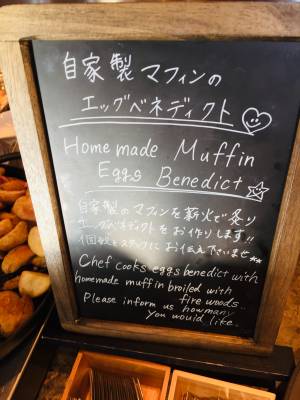 自家製マフィンの
エッグベネディクト
Home made Muffin
Eggs Benedict
自家製のマフィンを薪火で炙り
エッグベネディクトをお作りします!!
個数をスタッフにお伝え下さいませ
Chef cooks eggs benedict with
homemade muffin broiled with
fire woods.
Please inform us how many
you would like.